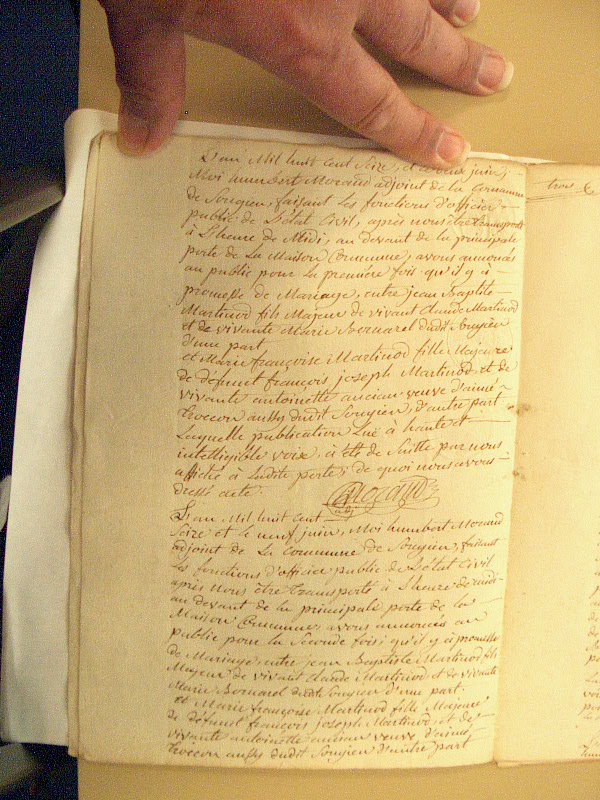 L'an Mil huit cent Seize, et le deux juin,
Moi humbert Moraud adjoint de la Commune
de Songieu, faisant les fonctions d'officier
public de L'état Civil, après nous être transporté
à L'heure de Midi, au devant de la principale
porte de La Maison Commune, avons annoncés
au public pour La première fois qu'il y à
promesse de Mariage, entre jean Baptiste
Martinod fils Majeur de vivant Claude Martinod
et de vivante Marie Bornarel dudit Songieu
d'une part
et Marie françoise Martinod fille Majeure
de défunt françois joseph Martinod, et de
vivante antoinette ancian veuve d'aimé
Troccon aussy dudit Songieu, d'autre part
Laquelle publication Luë à haute et
intelligible voix, à été de Suitte par nous
affiché à Ladite porte, de quoi nous avons
dressé acte
Moraud
adj
L'an Mil huit cent
Seize et le neuf juin, Moi humbert Moraud
adjoint de La Commune de Songieu, faisant
Les fonctions d'officier public de L'état Civil
après nous être transporté à L'heure de midi
au devant de la principale porte de La
Maison Commune, avons annoncés au
public pour La Seconde fois, qu'il y à promesse
de Mariage, entre jean Baptiste Martinod fils
Majeur de vivant Claude Martinod, et de vivante
Marie Bornarel dudit Songieu d'une part.
et Marie françoise Martinod fille Majeure
de défunt françois joseph Martinod, et de
vivante antoinette ancian veuve d'aimé
Troccon aussy dudit Songieu d'autre part
trois